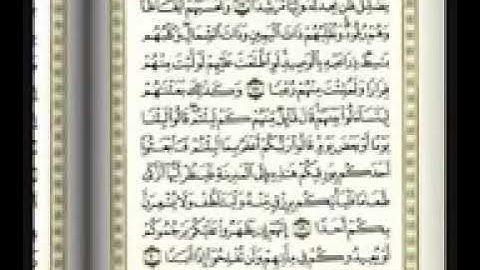 يُضْلِلْ فَلَن تَجِدَ لَهُۥ وَلِيًّا مُّرْشِدًا ١٧ وَتَحْسَبُهُمْ أَيْقَاظًا
وَهُمْ رُقُودٌ وَنُقَلِّبُهُمْ ذَاتَ ٱلْيَمِينِ وَذَاتَ ٱلشِّمَالِ وَكَلْبُهُم
بَٰسِطٌ ذِرَاعَيْهِ بِٱلْوَصِيدِ لَوِ ٱطَّلَعْتَ عَلَيْهِمْ لَوَلَّيْتَ مِنْهُمْ
فِرَارًا وَلَمُلِئْتَ مِنْهُمْ رُعْبًا ١٨ وَكَذَٰلِكَ بَعَثْنَٰهُمْ
لِيَتَسَآءَلُوا۟ بَيْنَهُمْ قَالَ قَآئِلٌ مِّنْهُمْ كَمْ لَبِثْتُمْ قَالُوا۟ لَبِثْنَا
يَوْمًا أَوْ بَعْضَ يَوْمٍ قَالُوا۟ رَبُّكُمْ أَعْلَمُ بِمَا لَبِثْتُمْ فَٱبْعَثُوٓا۟
أَحَدَكُم بِوَرِقِكُمْ هَٰذِهِۦٓ إِلَى ٱلْمَدِينَةِ فَلْيَنظُرْ أَيُّهَآ أَزْكَىٰ
طَعَامًا فَلْيَأْتِكُم بِرِزْقٍ مِّنْهُ وَلْيَتَلَطَّفْ وَلَا يُشْعِرَنَّ
بِكُمْ أَحَدًا ١٩ إِنَّهُمْ إِن يَظْهَرُوا۟ عَلَيْكُمْ يَرْجُمُوكُمْ
أَوْ يُعِيدُوكُمْ فِى مِلَّتِهِمْ وَلَن تُفْلِحُوٓا۟ إِذًا أَبَدًا ٢٠